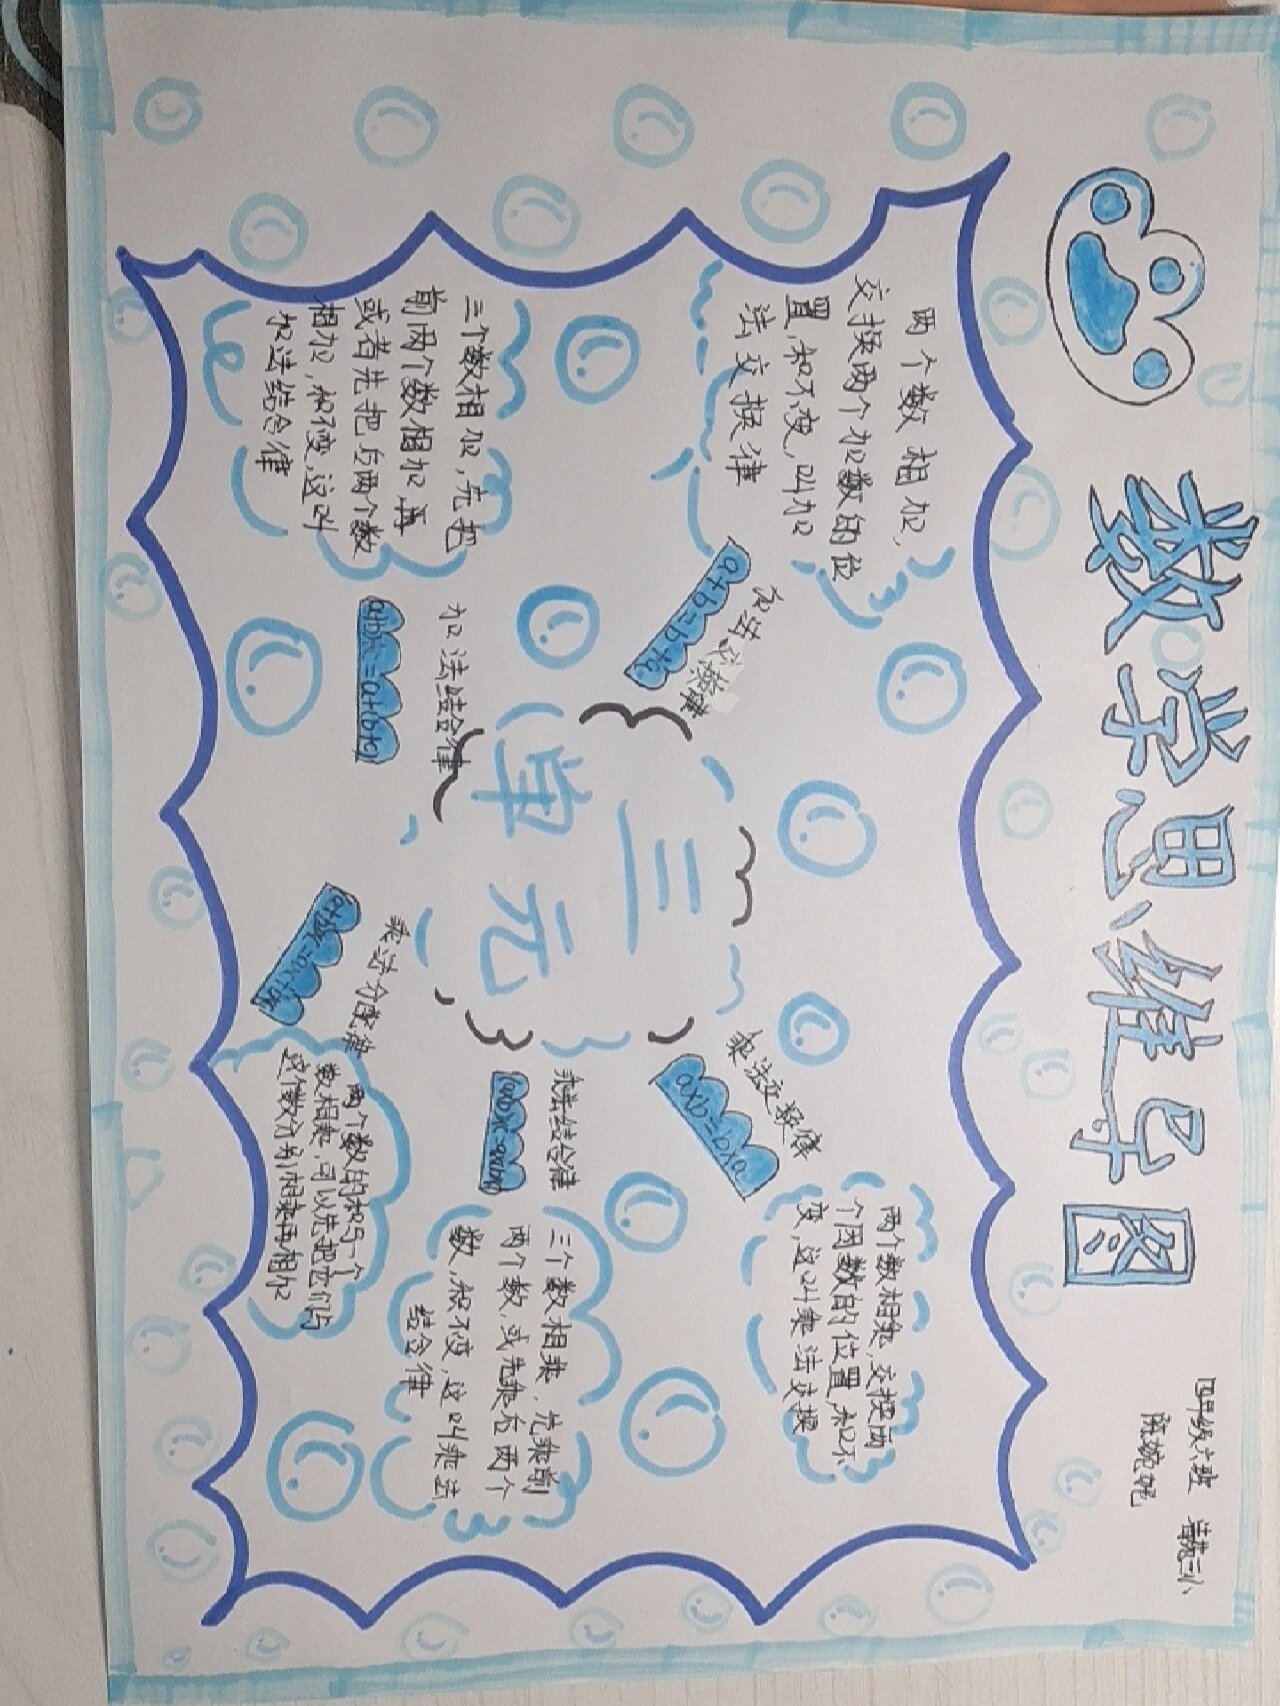 数学思维导图
四年级六班
陈婉妮
三单元
加法交换律
a+b=b+a
两个数相加,
交换两个加数的位
置,和不变,叫加
法交换律
加法结合律
三个数相加,先把
前两个数相加再
或者先把后两个数
相加,和不变,这叫
加法结合律
乘法交换律
a×b=b×a
两个数相乘,交换两
个因数的位置,积不
变,这叫乘法交换
乘法结合律
三个数相乘,先乘前
两个数,或先乘后两个
数,积不变,这叫乘法
结合律
乘法分配律
两个数的和与一个
数相乘,可以先把它们与
这个数分别相乘再相加